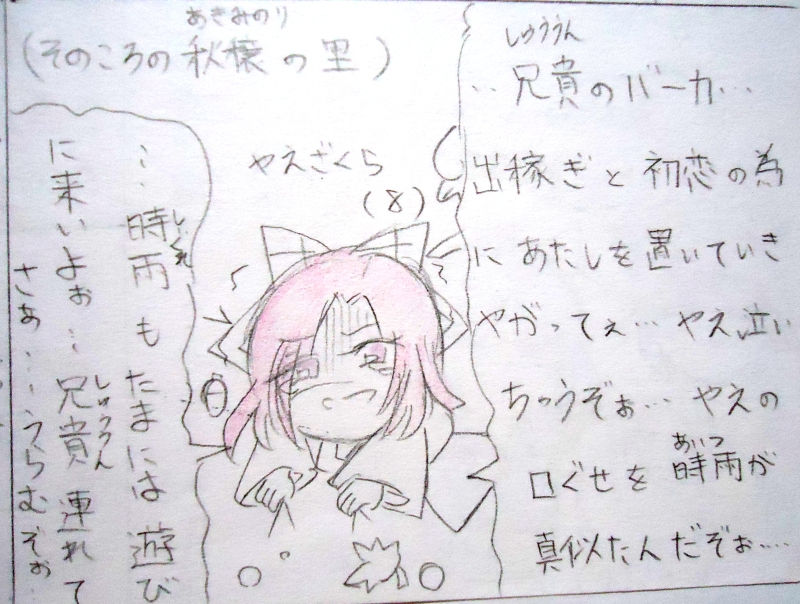 (そのころの秋穣の里)
あきみのり
しゅううん
…兄貴のバーカ…
出稼ぎと初恋の為
にあたしを置いていき
やがってぇ…やえ泣い
ちゃうぞぉ…やえの
口ぐせを時雨が
あいつ
真似たんだぞぉ…
やえざくら
(8)
…時雨もたまには遊び
しぐれ
に来いよぉ…兄貴連れて
しゅううん
さぁ…うらむぞぉ…